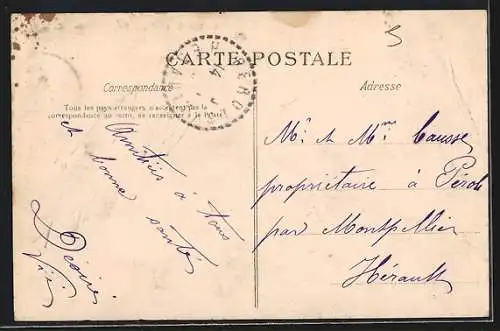 CARTE POSTALE
Correspondance
Tous les pays étrangers n'acceptent pas la
correspondance au recto, se renseigner à la Poste
Amitiés à tous
et bonne santé
Désiré
Adresse
Mr. et Mme Causse
propriétaire à Pérols
par Montpellier
Hérault
PEROLS
14